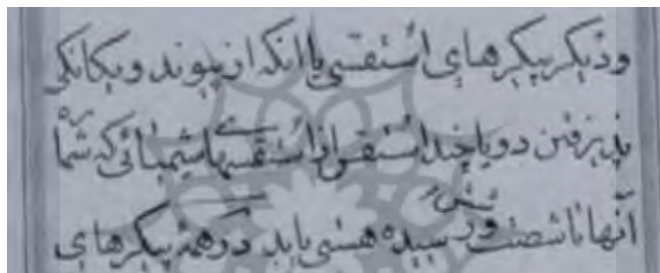 و دیگر پیکرهای اسْتقسی یا انکه از پیوند و یکانکی
پذیرفتن دو یا چند استقس از استقسهای شیمیائی که شمارهٔ
آنها تا شصت و شش رسیده هستی یابد در همهٔ پیکرهای